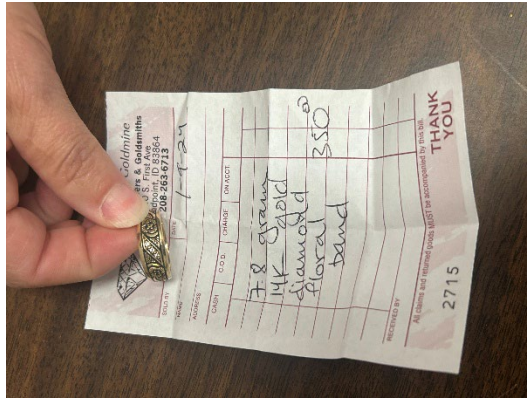 Goldmine
ers & Goldsmiths
S. First Ave
point, ID 83864
208-263-6713
DATE
SOLD BY
NAME
ADDRESS
CASH C.O.D. CHARGE ON ACCT.
7.8 grams
14K gold
diamond
floral 350 00
band
RECEIVED BY
All claims and returned goods MUST be accompanied by this bill.
2715
THANK
YOU